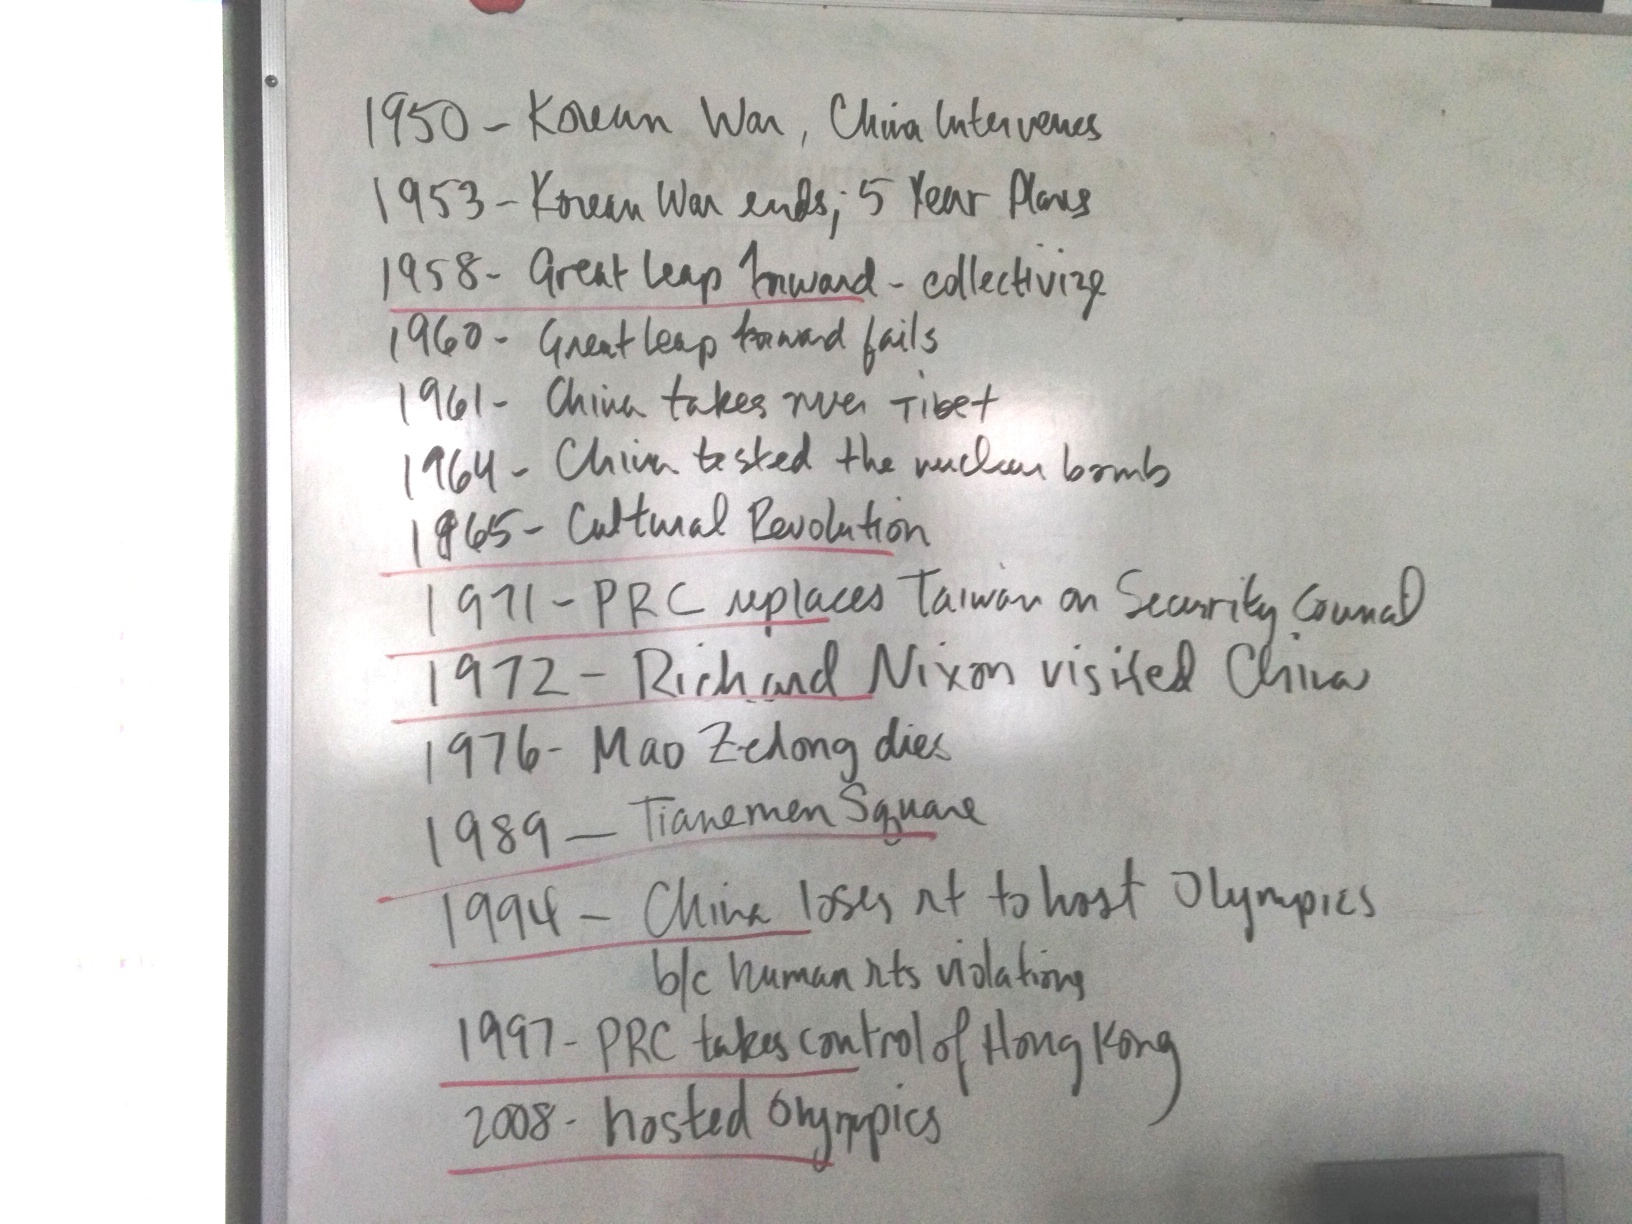 1950 - Korean War, China Intervenes
1953 - Korean War ends; 5 Year Plans
1958 - Great Leap Forward - collectivize
1960 - Great Leap Forward fails
1961 - China takes over Tibet
1964 - China tested the nuclear bomb
1965 - Cultural Revolution
1971 - PRC replaces Taiwan on Security Council
1972 - Richard Nixon visited China
1976 - Mao Zedong dies
1989 - Tianemen Square
1994 - China loses rt to host Olympics
b/c human rts violations
1997 - PRC takes control of Hong Kong
2008 - hosted Olympics